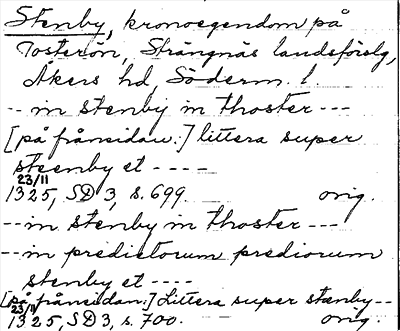 Stenby, kronoegendom på
Tosterön, Strängnäs landsförslg,
Åkers hd, Söderm. l
-- in stenby in thoster ---
[på frånsidan:] littera super
steenby et ----
23/11
1325, SD 3, s. 699. orig.
-- in stenby in thoster ---
-- in predictorum prediorum
stenby et ----
[på frånsidan:] Littera super stænby --
23/11
1325, SD 3, s. 700. orig.